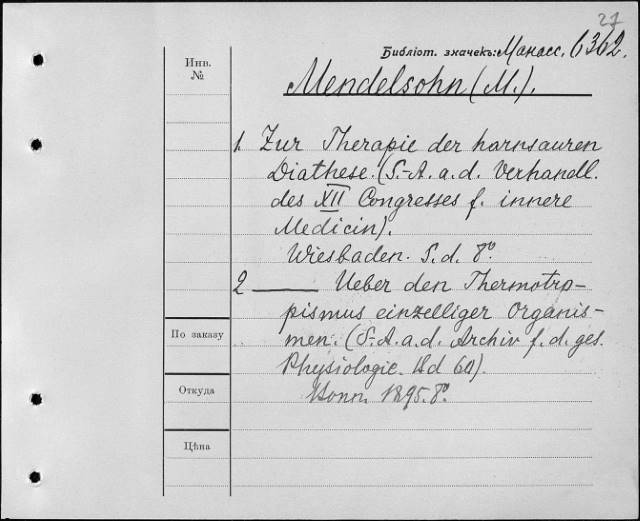 27
Библіот. значекъ: Манасс. 6362.
Инв.
№
Mendelsohn (M.).
1. Zur Therapie der harnsauren
Diathese. (S.-A. a. d. Verhandl.
des XII Congresses f. innere
Medicin).
Wiesbaden. S. d. 8º
2 —— Ueber den Thermotro-
pismus einzelliger Organis-
men. (S.-A. a. d. Archiv f. d. ges.
Physiologie. Bd 60).
Bonn. 1895. 8º
По заказу
Откуда
Цѣна